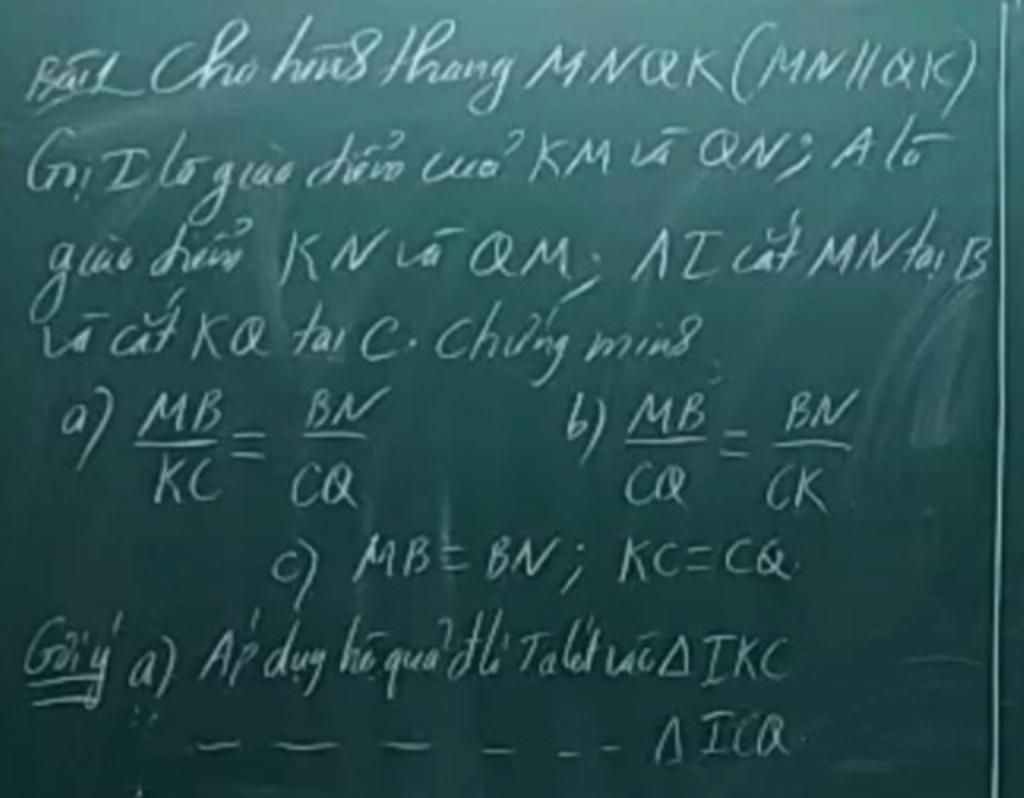 Bài 1 Cho hình thang MNQK (MN // QK)
Gọi I là giao điểm của KM và QN; A là
giao điểm KN và QM; AI cắt MN tại B
và cắt KQ tại C. Chứng minh
a) MB/KC = BN/CQ b) MB/CQ = BN/CK
c) MB = BN; KC = CQ.
Gợi ý a) Áp dụng hệ quả đ.lí Talét vào Δ IKC
— — — — — — Δ ICQ.